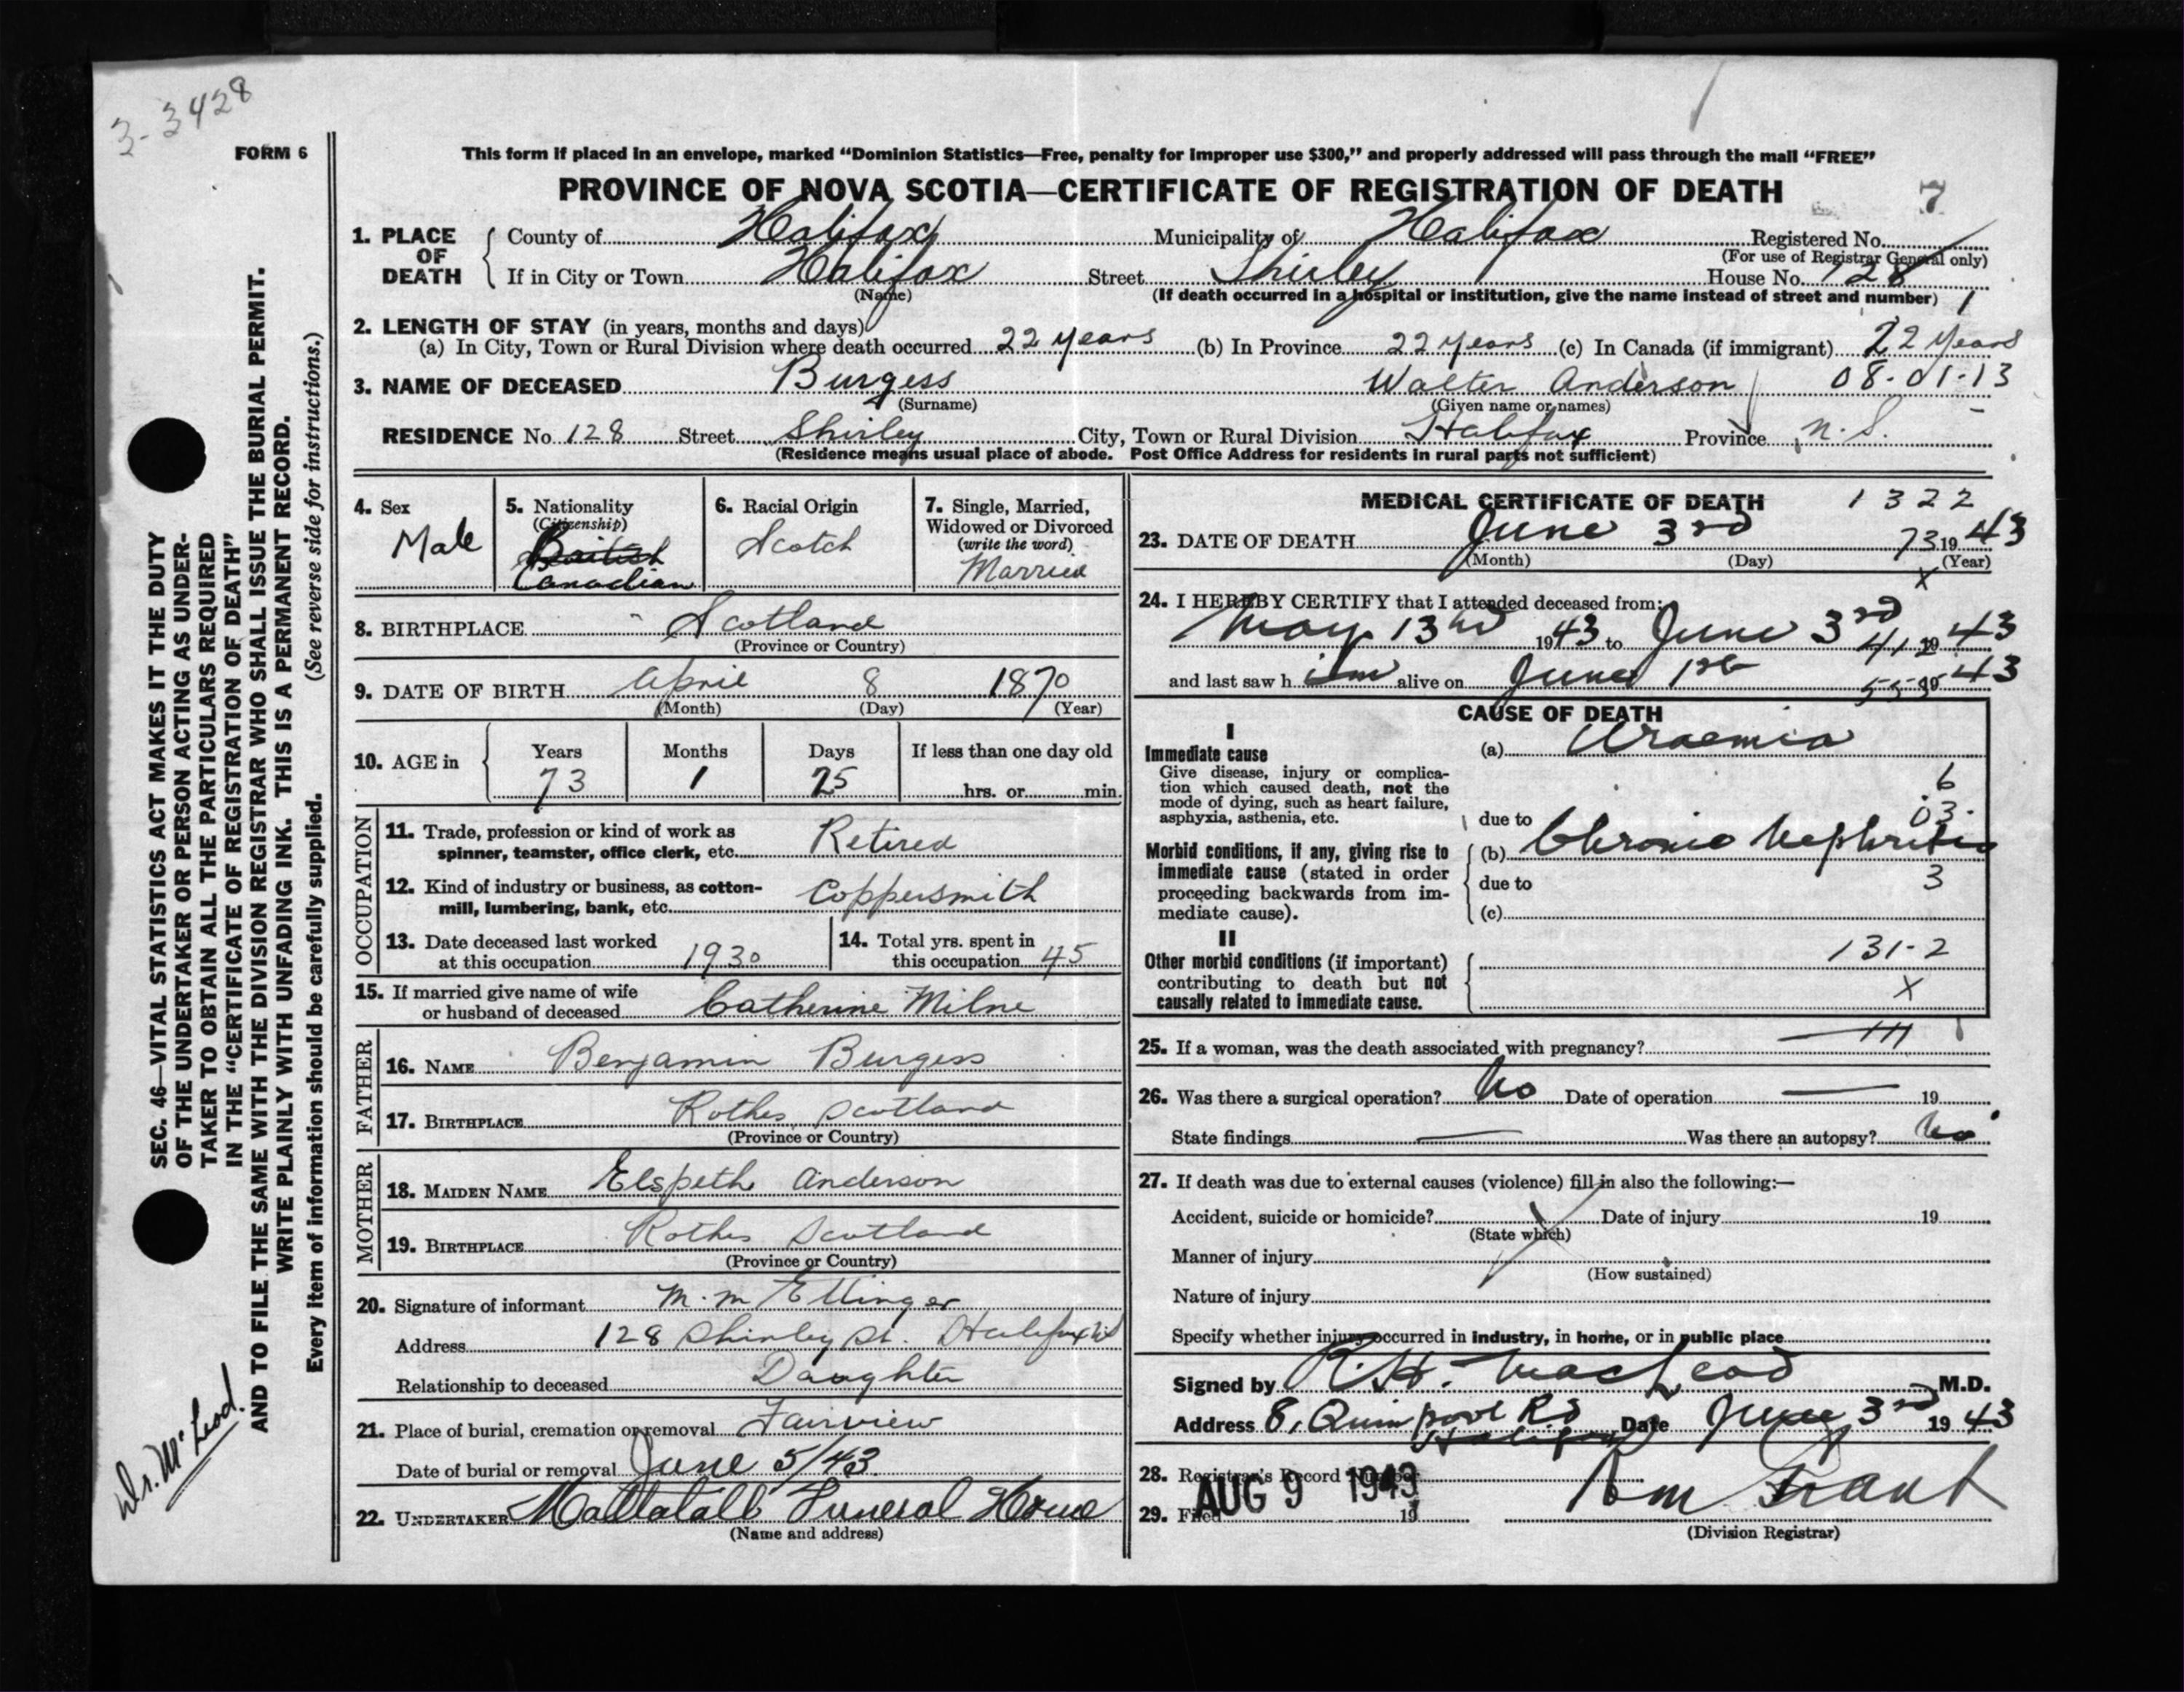 3-3428
FORM 6
This form if placed in an envelope, marked “Dominion Statistics—Free, penalty for improper use $300,” and properly addressed will pass through the mail “FREE”
PROVINCE OF NOVA SCOTIA—CERTIFICATE OF REGISTRATION OF DEATH
7
1. PLACE OF DEATH
County of Halifax Municipality of Halifax Registered No.
(For use of Registrar General only)
If in City or Town Halifax Street Shirley House No. 128
(Name) (If death occurred in a hospital or institution, give the name instead of street and number) 1
2. LENGTH OF STAY (in years, months and days)
(a) In City, Town or Rural Division where death occurred 22 years (b) In Province 22 years (c) In Canada (if immigrant) 22 years
3. NAME OF DECEASED Burgess Walter Anderson 08-01-13
(Surname) (Given name or names)
RESIDENCE No. 128 Street Shirley City, Town or Rural Division Halifax Province N.S.
(Residence means usual place of abode. Post Office Address for residents in rural parts not sufficient)
4. Sex
Male
5. Nationality
(Citizenship)
British
Canadian
6. Racial Origin
Scotch
7. Single, Married,
Widowed or Divorced
(write the word)
Married
8. BIRTHPLACE Scotland
(Province or Country)
9. DATE OF BIRTH April 8 1870
(Month) (Day) (Year)
10. AGE in
Years Months Days If less than one day old
73 1 25 hrs. or min.
OCCUPATION
11. Trade, profession or kind of work as
spinner, teamster, office clerk, etc. Retired
12. Kind of industry or business, as cotton-
mill, lumbering, bank, etc. Coppersmith
13. Date deceased last worked
at this occupation 1930
14. Total yrs. spent in
this occupation 45
15. If married give name of wife
or husband of deceased Catherine Milne
FATHER
16. NAME Benjamin Burgess
17. BIRTHPLACE Rothes, Scotland
(Province or Country)
MOTHER
18. MAIDEN NAME Elspeth Anderson
19. BIRTHPLACE Rothes Scotland
(Province or Country)
20. Signature of informant M. M Ettinger
Address 128 Shirley St. Halifax NS
Relationship to deceased Daughter
21. Place of burial, cremation or removal Fairview
Date of burial or removal June 5/43.
22. UNDERTAKER Mattatall Funeral Home
(Name and address)
MEDICAL CERTIFICATE OF DEATH 1322
23. DATE OF DEATH June 3rd 73 1943
(Month) (Day) (Year)
x
24. I HEREBY CERTIFY that I attended deceased from:
May 13 1943 to June 3rd 1943
and last saw him alive on June 1st 43
CAUSE OF DEATH
I
Immediate cause
Give disease, injury or complica-
tion which caused death, not the
mode of dying, such as heart failure,
asphyxia, asthenia, etc.
(a) Uraemia
6
03.
due to
Morbid conditions, if any, giving rise to
immediate cause (stated in order
proceeding backwards from im-
mediate cause).
(b) Chronic Nephritis
due to 3
(c)
II
Other morbid conditions (if important)
contributing to death but not
causally related to immediate cause.
131-2
x
25. If a woman, was the death associated with pregnancy?
26. Was there a surgical operation? No Date of operation — 19
State findings — Was there an autopsy? No
27. If death was due to external causes (violence) fill in also the following:—
Accident, suicide or homicide? Date of injury 19
(State which)
Manner of injury
(How sustained)
Nature of injury
Specify whether injury occurred in industry, in home, or in public place
Signed by R. H. MacLeod M.D.
Address 8, Quinpool Rd Date June 3rd 1943
Halifax
28. Registrar's Record Number
29. Filed AUG 9 1943 19
(Division Registrar)
SEC. 46—VITAL STATISTICS ACT MAKES IT THE DUTY
OF THE UNDERTAKER OR PERSON ACTING AS UNDER-
TAKER TO OBTAIN ALL THE PARTICULARS REQUIRED
IN THE “CERTIFICATE OF REGISTRATION OF DEATH”
AND TO FILE THE SAME WITH THE DIVISION REGISTRAR WHO SHALL ISSUE THE BURIAL PERMIT.
WRITE PLAINLY WITH UNFADING INK. THIS IS A PERMANENT RECORD.
Every item of information should be carefully supplied. (See reverse side for instructions.)
Dr. McLeod.